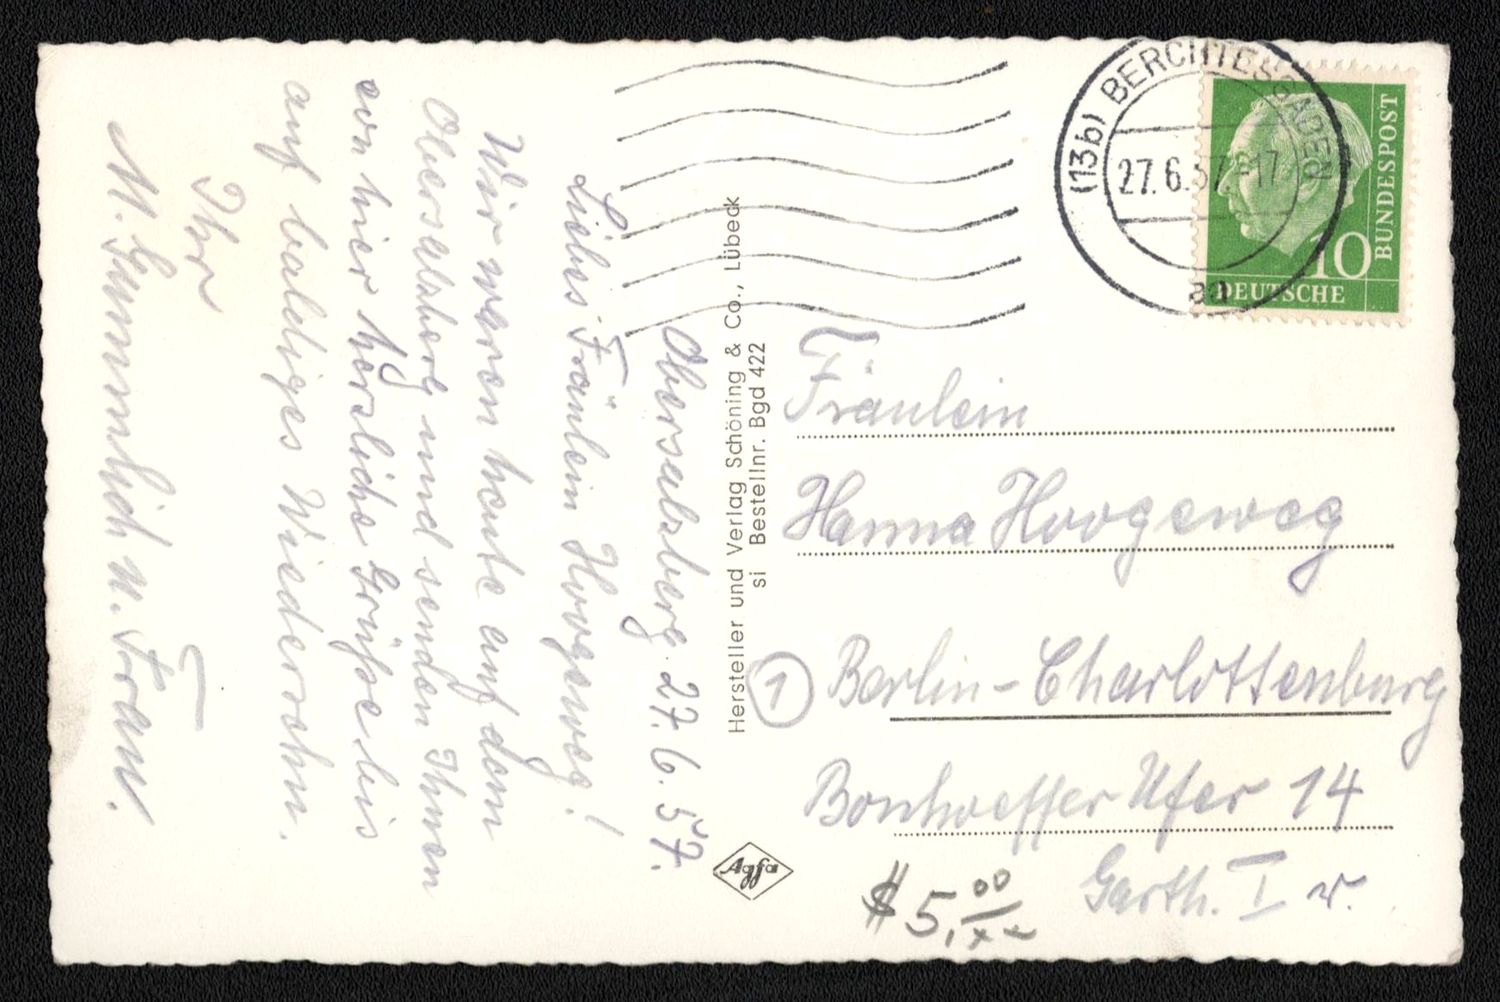 Obersalzberg. 27. 6. 57.
Liebes Fräulein Hoogeweg!
Wir waren heute auf dem
Obersalzberg und senden Ihnen
von hier herzliche Grüsse bis
auf baldiges Wiedersehn.
Ihr
u. Frau.
Hersteller und Verlag Schöning & Co., Lübeck
si Bestellnr. Bgd 422
Agfa
(13b) BERCHTESGADEN
27.6.57-17
aa
10
DEUTSCHE
BUNDESPOST
Fräulein
Hanna Hoogeweg
1 Berlin-Charlottenburg
Bonhoeffer Ufer 14
Garth. I r.
$5,00